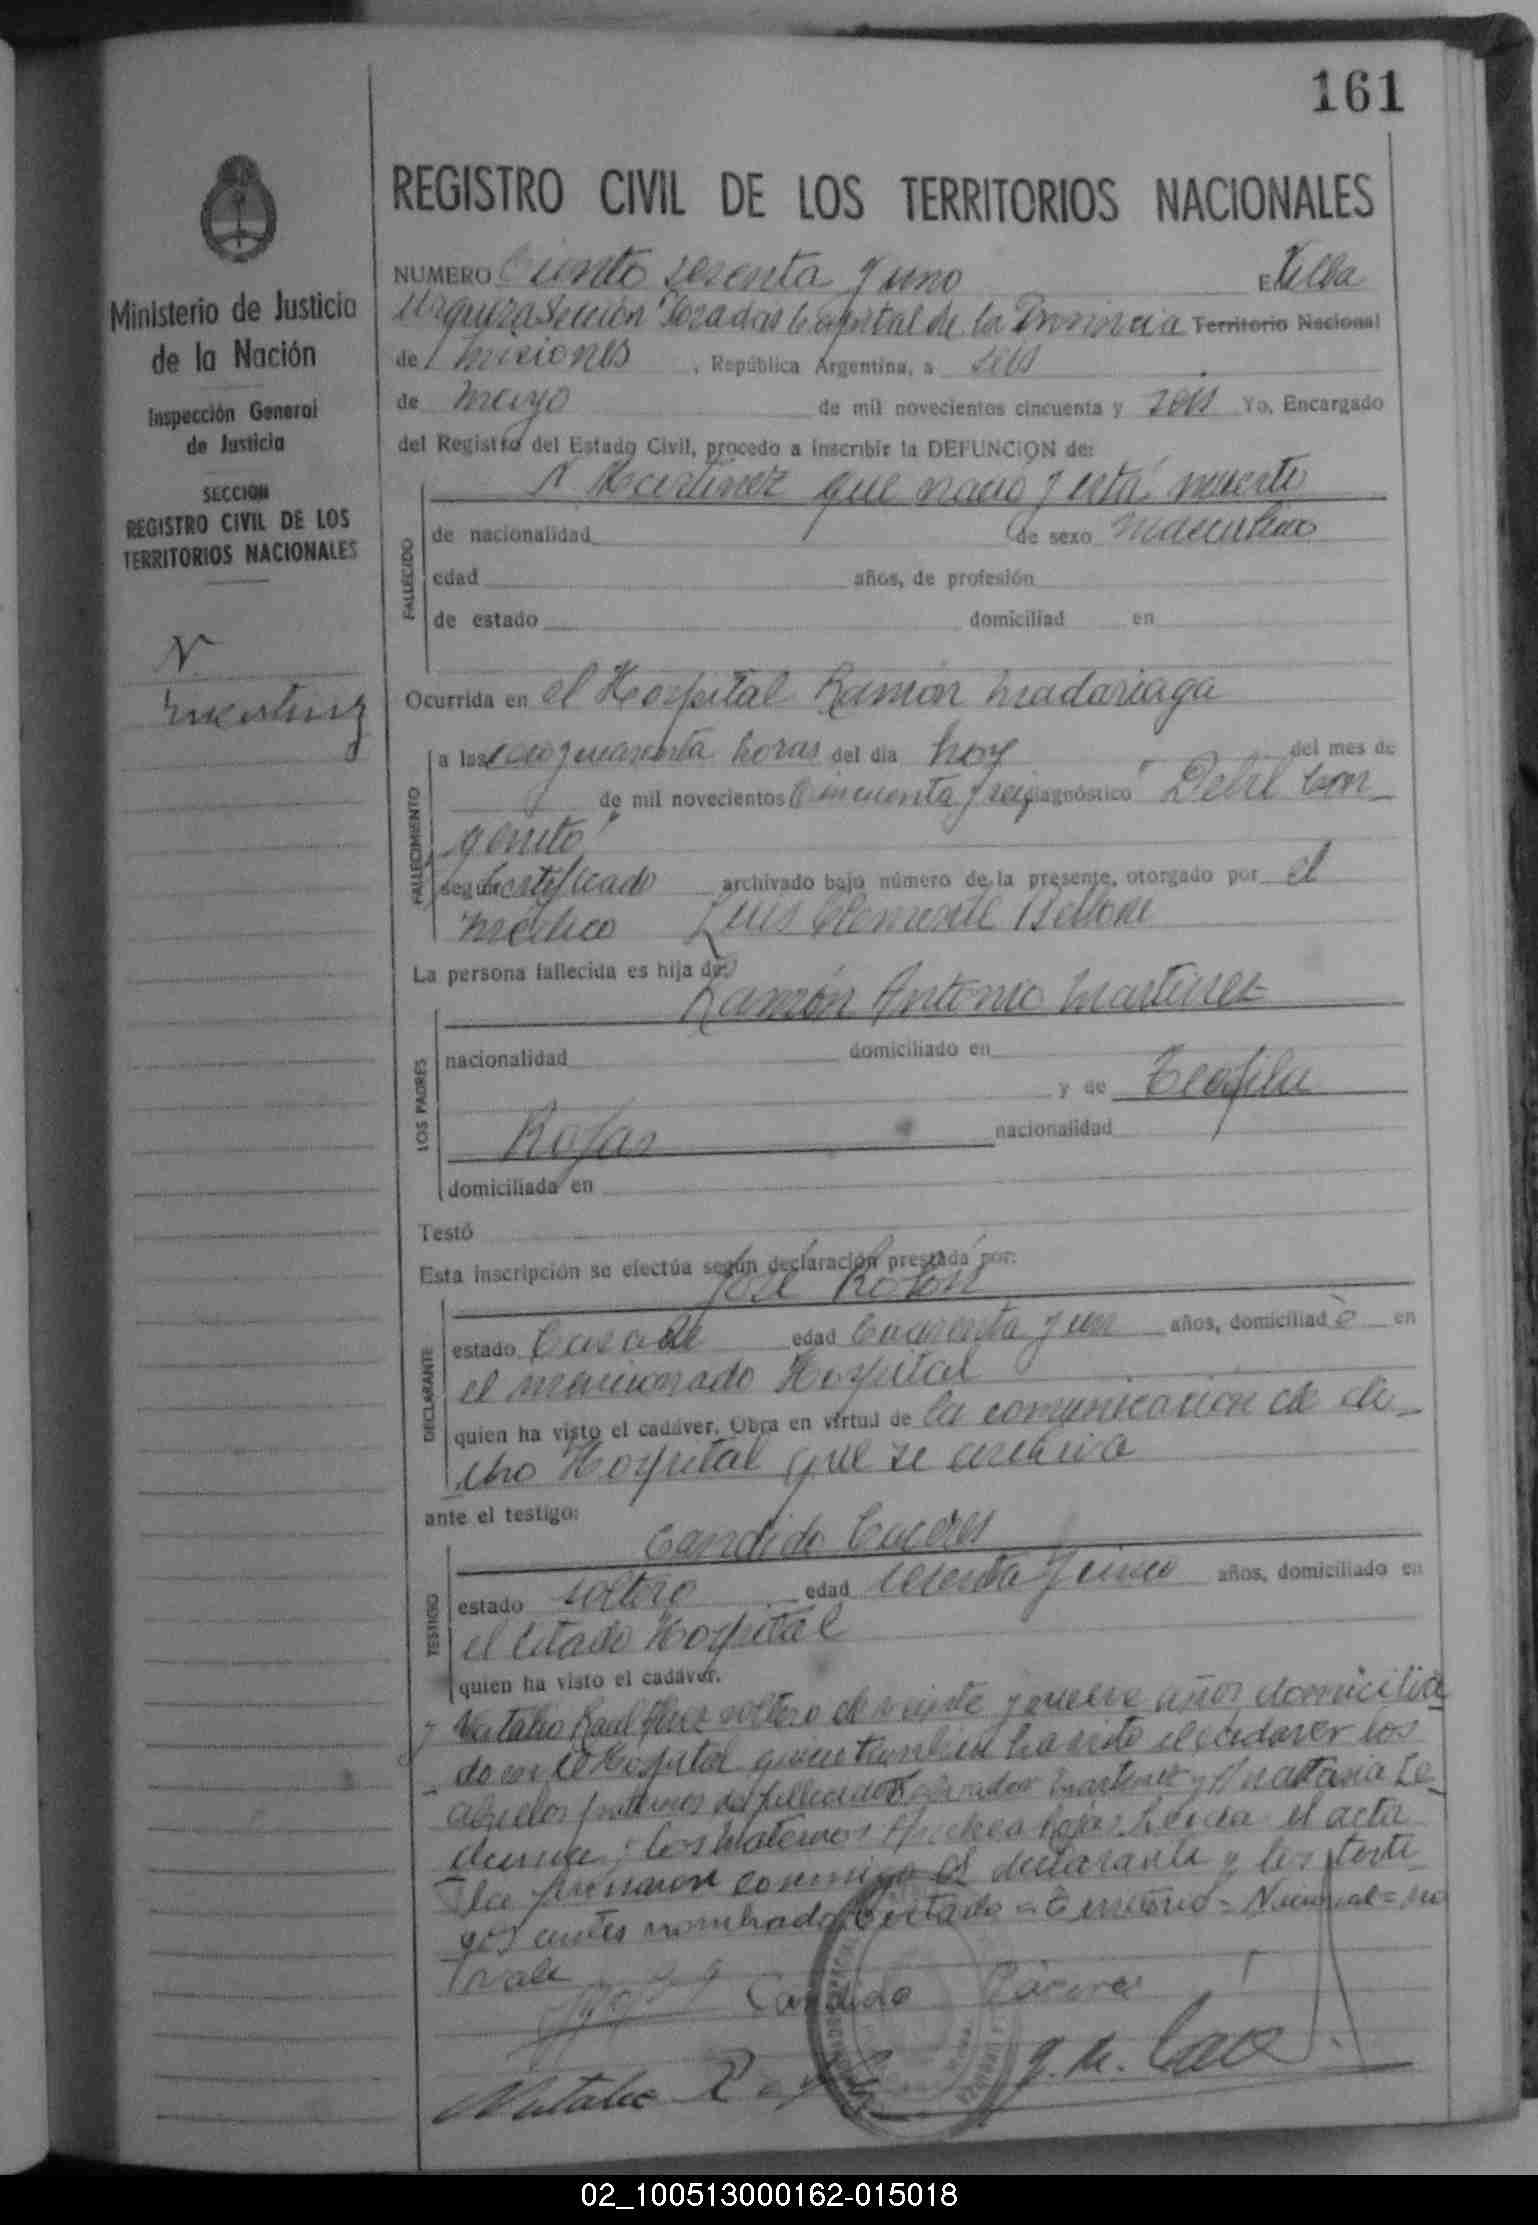 161
REGISTRO CIVIL DE LOS TERRITORIOS NACIONALES
Ministerio de Justicia
de la Nación
Inspección General
de Justicia
SECCION
REGISTRO CIVIL DE LOS
TERRITORIOS NACIONALES
N.
Martinez
NUMERO Ciento sesenta y uno En Villa
Urquiza Sección Posadas Capital de la Provincia Territorio Nacional
de Misiones, República Argentina, a seis
de Mayo de mil novecientos cincuenta y seis Yo, Encargado
del Registro del Estado Civil, procedo a inscribir la DEFUNCION de:
FALLECIDO
N Martinez que nació y está muerto
de nacionalidad de sexo masculino
edad años, de profesión
de estado domiciliad en
Ocurrida en el Hospital Ramón Madariaga
FALLECIMIENTO
a las y cuarenta horas del día hoy del mes de
de mil novecientos cincuenta y seis diagnóstico "Debil Con-
genito"
según certificado archivado bajo número de la presente, otorgado por el
médico Luis Clemente Bellone
La persona fallecida es hija de:
LOS PADRES
Ramón Antonio Martinez
nacionalidad domiciliado en
y de Teofila
Rojas nacionalidad
domiciliada en
Testó
Esta inscripción se efectúa según declaración prestada por:
DECLARANTE
José Rolón
estado Casado edad Cuarenta y un años, domiciliado en
el mencionado Hospital
quien ha visto el cadáver. Obra en virtud de la comunicación de di-
cho Hospital que se archiva
ante el testigo:
TESTIGO
Candido Caceres
estado soltero edad sesenta y cinco años, domiciliado en
el citado Hospital
quien ha visto el cadáver.
y Natalio Raul soltero de veinte y nueve años domicilia-
do en el Hospital quien tambien ha visto el cadaver los
abuelos paternos del fallecido Martinez y Anastacia Le-
; los maternos Rojas Leida el acta
la firmaron conmigo el declarante y los testi-
gos antes nombrados Testado = Territorio = Nacional = no
vale
Candido Cáceres
Natalio R.
02_100513000162-015018